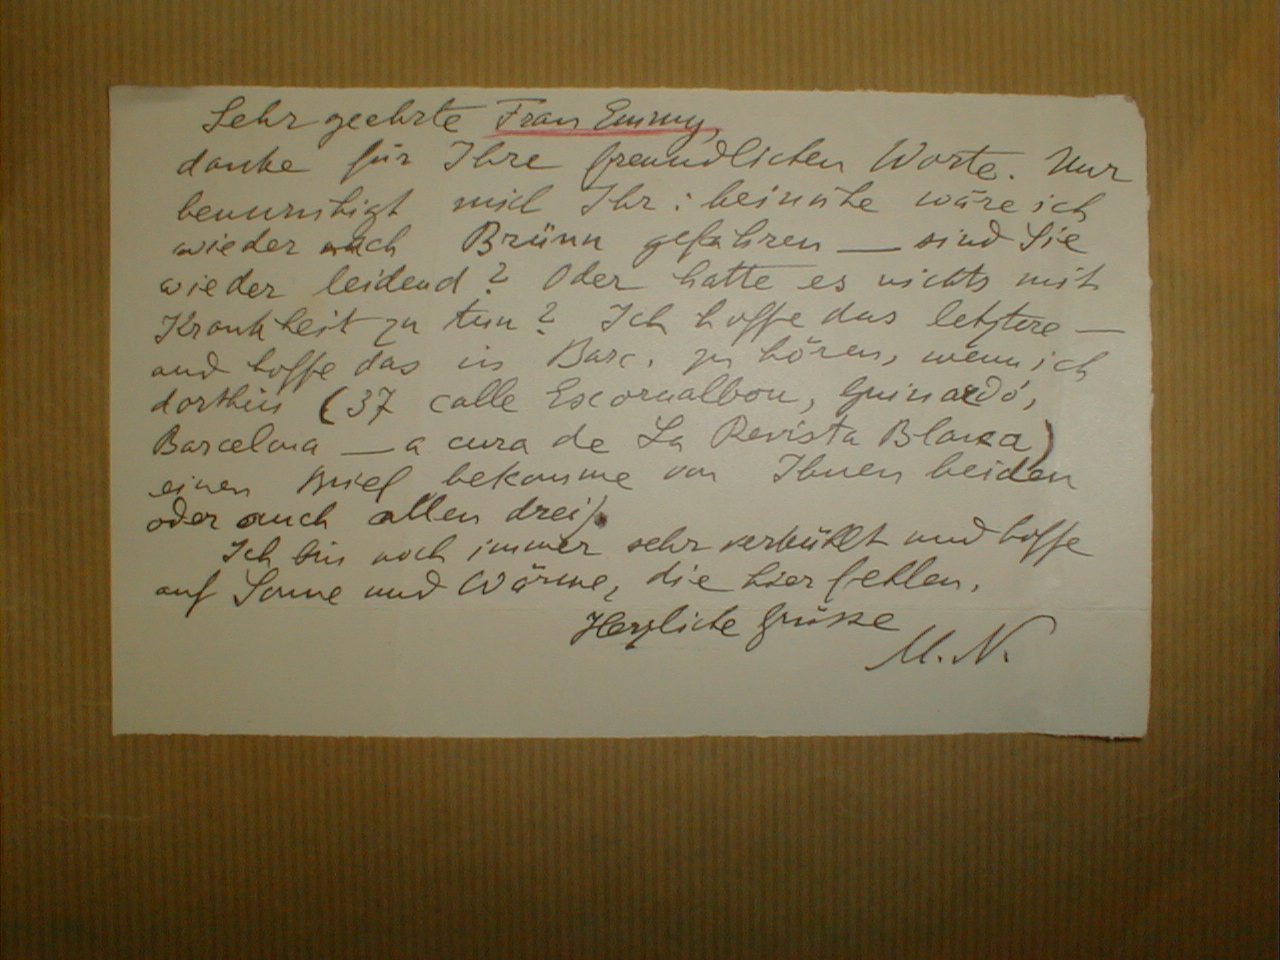 Sehr geehrte Frau Emmy,
danke für Ihre freundlichen Worte. Nur
beunruhigt mich Ihr: beinahe wäre ich
wieder nach Brünn gefahren — sind Sie
wieder leidend? Oder hatte es nichts mit
Krankheit zu tun? Ich hoffe das letztere —
und hoffe das in Barc. zu hören, wenn ich
dorthin (37 calle Escornalbou, Guinardó,
Barcelona — a cura de La Revista Blanca)
einen Brief bekomme von Ihnen beiden
oder auch allen drei.
Ich bin noch immer sehr verkühlt und hoffe
auf Sonne und Wärme, die hier fehlen.
Herzliche Grüsse
M. N.